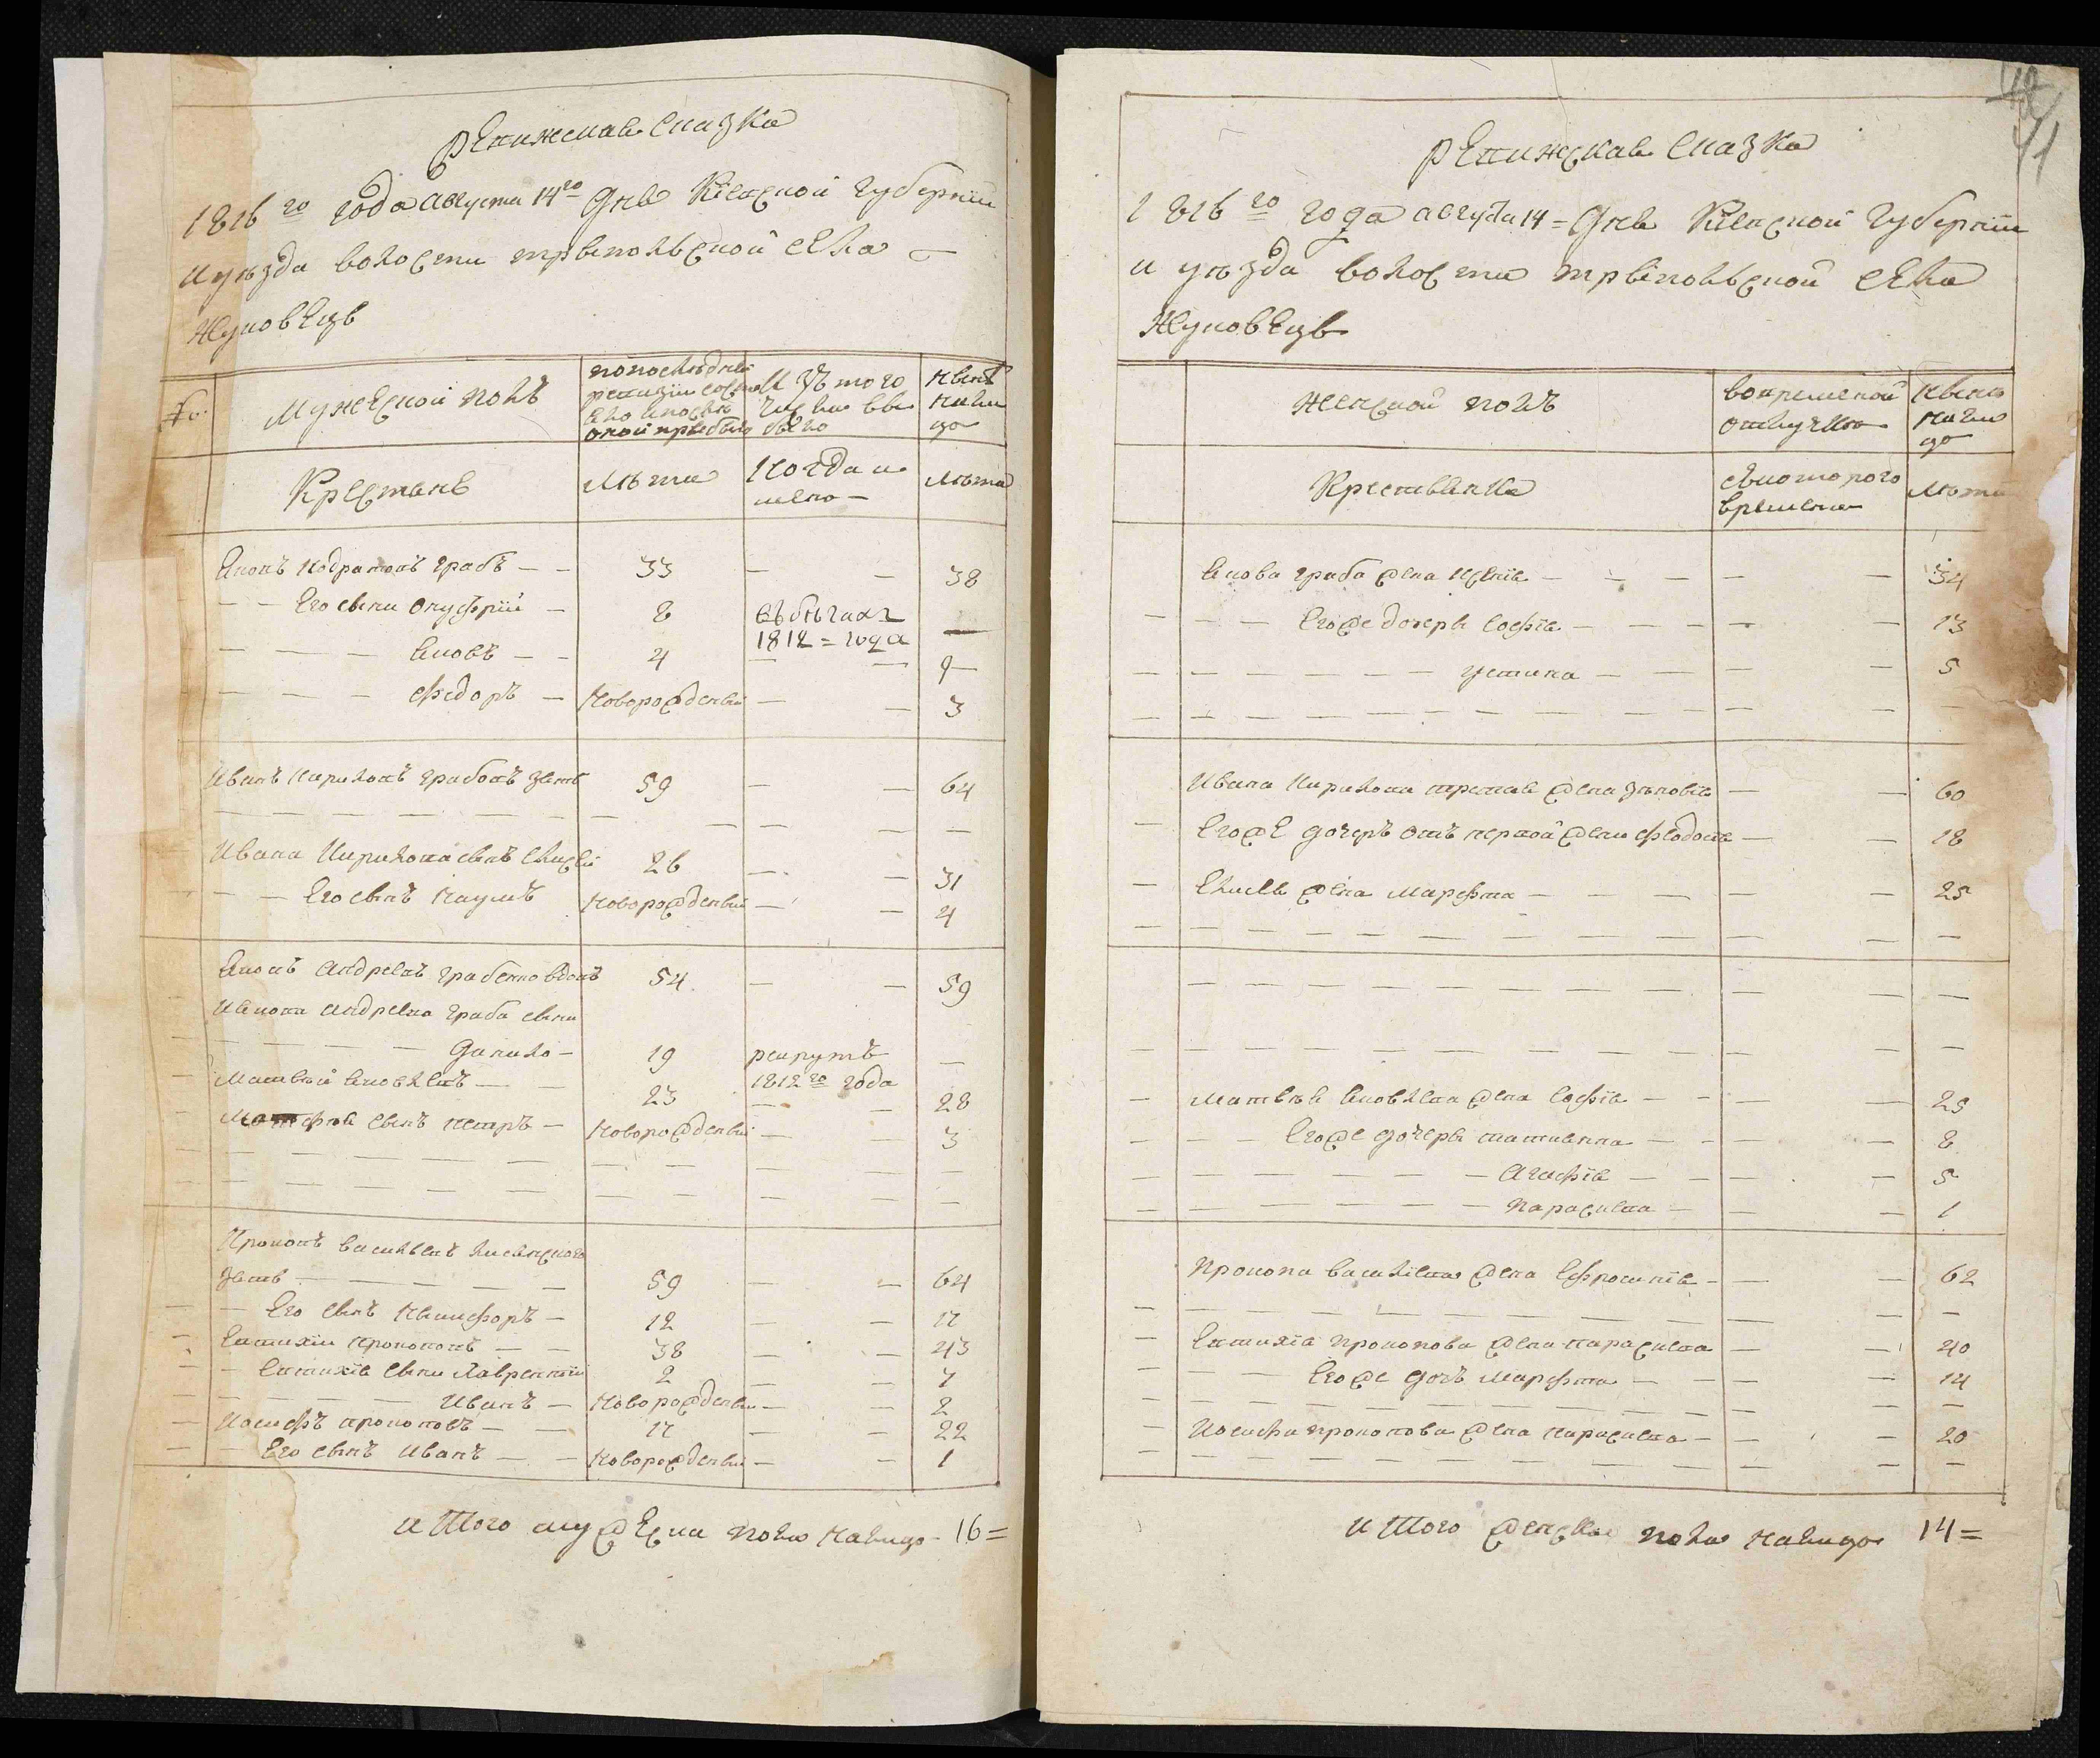 ревижская сказка
1816 го года августа 14го дня Кіевской губерніи
и уезда волости трыпольской села
Жуковецъ
№
Мужеской полъ
по последней ревизіи состояло и после оной прыбыло
Изъ того числа выбыло
ныне налицо
Крестяне
Лета
Когда именно
Лета
Яковъ Кодратовъ грабъ — — 33 — — 38
— — Его сыни Онуфрій — 8 въ бегахъ 1812 = года —
— — — Яковъ — — 4 — — 9
— — — Федоръ — Новорожденый — — 3
Иванъ Кириловъ грабовъ зять 59 — — 64
Ивана Кирилова сынъ Елисей 26 — — 31
— — Его сынъ Наумъ Новорожденый — — 4
Яковъ Андреевъ грабенко вдовъ 54 — — 59
Якова Андреева граба сыни
— — — — Данило — 19 рекрутъ 1812 го года —
Матвей Яковлевъ — — 23 — — 28
сынъ петръ — Новорожденый — — 3
Прокопъ васильевъ
зять — — — — 59 — — 64
— — Его сынъ Никифоръ — 12 — — 17
Евтихіи прокоповъ — — 38 — — 43
— — Евтихія сыни Лаврентій 2 — — 7
— — — — Иванъ — Новорожденый — — 2
Иосифъ прокоповъ — — 17 — — 22
— — Его сынъ Иванъ — — Новорожденый — — 1
итого мужеска пола налицо — 16 =
42
41
ревижская сказка
1816 го года августа 14 = дня Кіевской губерніи
и уезда волости трыпольской села
Жуковецъ
женской полъ
во временной отлучке
ныне налицо
Крестянки
с которого времени
Лета
Якова граба жена Ксенія — — — — — 34
— — — Егоже дочеры Софія — — — — — 13
— — — — — — Устина — — — — 5
Ивана Кирилова третая жена Зеновія — — 60
— Егоже дочеръ отъ первой жены Феодосія — — 18
— Елисея жена Марфта — — — — — 25
— Матвея Яковлева жена Софія — — — — 25
— — — Егоже дочеры татияна — — — — 8
— — — — — — Агафія — — — — 5
— — — — — — Параскева — — — 1
Прокопа василіева жена Ефросинія — — — 62
— Евтихія прокопова жена параскева — — 40
— — Егоже дочъ Марфта — — — — 14
— Иосифа прокопова жена параскева — — — 20
итого женска пола налицо 14 =